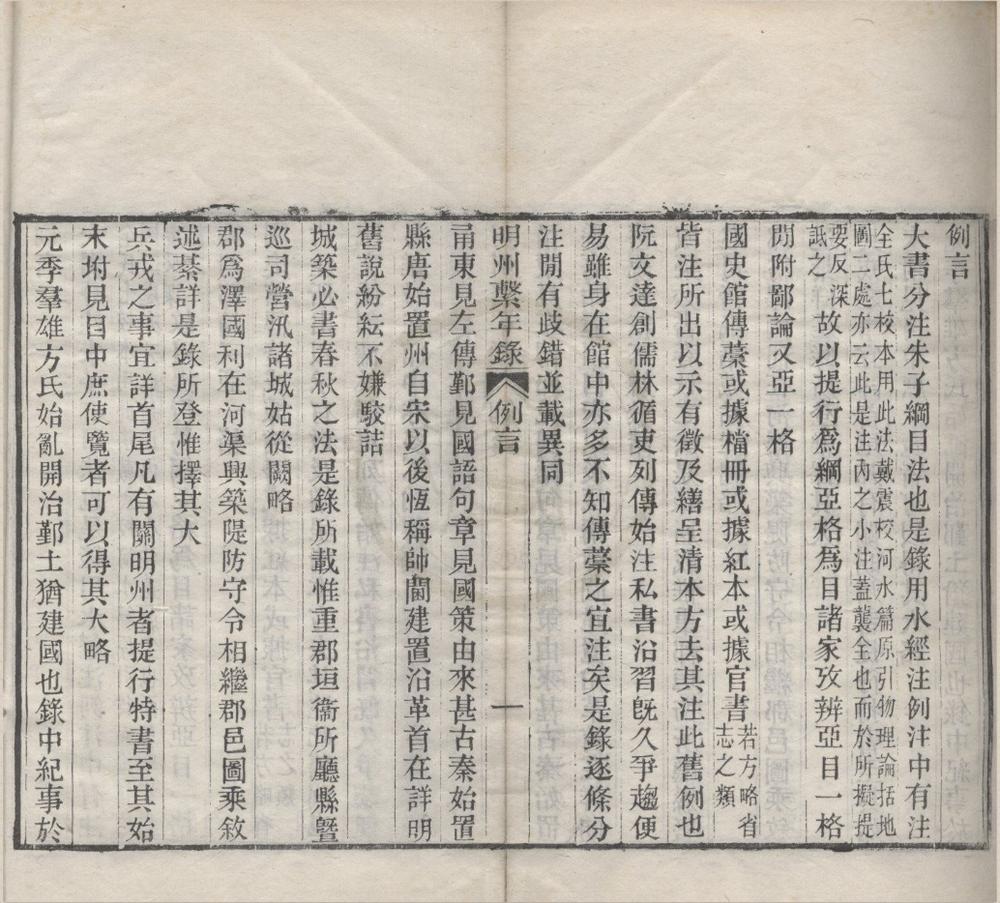 例言
大書分注朱子綱目法也是錄用水經注例注中有注
全氏七校本用此法戴震校河水篇原引物理論括地
圖二處亦云此是注內之小注蓋襲全也而於所擬提
要反深
詆之
故以提行爲綱亞格爲目諸家攷辨亞目一格
閒附鄙論又亞一格
國史館傳藁或據檔冊或據紅本或據官書
若方略省
志之類
皆注所出以示有徵及繕呈清本方去其注此舊例也
阮文達創儒林循吏列傳始注私書沿習旣久爭趨便
易雖身在館中亦多不知傳藁之宜注矣是錄逐條分
注閒有歧錯並載異同
明州繫年錄 例言 一
甬東見左傳鄞見國語句章見國策由來甚古秦始置
縣唐始置州自宋以後恆稱帥閫建置沿革首在詳明
舊說紛紜不嫌駁詰
城築必書春秋之法是錄所載惟重郡垣衞所廳縣曁
巡司營汛諸城姑從闕略
郡爲澤國利在河渠興築隄防守令相繼郡邑圖乘敘
述綦詳是錄所登惟擇其大
兵戎之事宜詳首尾凡有關明州者提行特書至其始
末坿見目中庶使覽者可以得其大略
元季羣雄方氏始亂開治鄞土猶建國也錄中紀事於